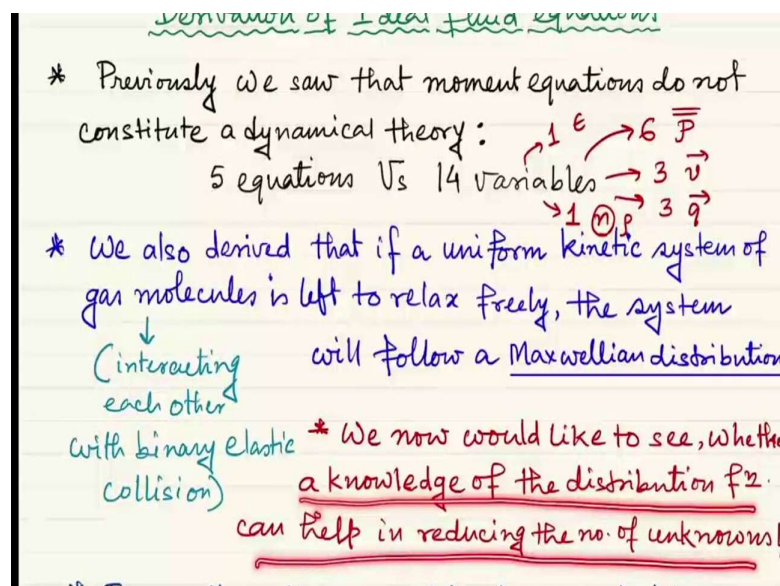 Derivation of Ideal fluid equations
* Previously we saw that moment equations do not
constitute a dynamical theory :
1 ε → 6 P
5 equations Vs 14 variables → 3 v
1 n ρ 3 q
* We also derived that if a uniform kinetic system of
gas molecules is left to relax freely, the system
will follow a Maxwellian distribution
(interacting
each other
with binary elastic
collision)
* We now would like to see, whethe
a knowledge of the distribution fn.
can help in reducing the no. of unknowns!